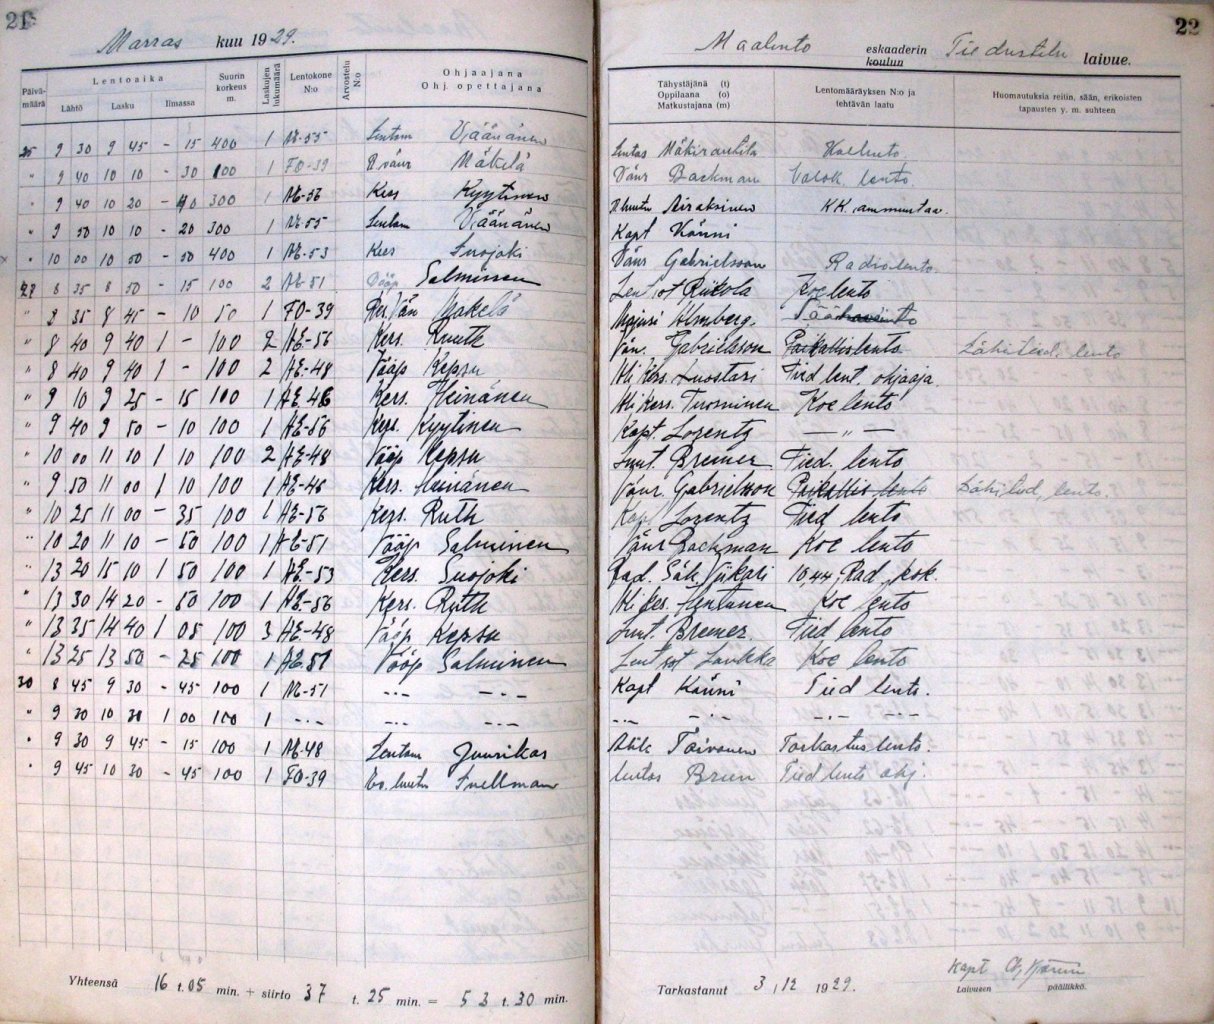 21
Marras kuu 1929.
Päivä-määrä
Lentoaika
Lähtö Lasku Ilmassa
Suorin korkeus m.
Laskujen lukumäärä
Lentokone N:o
Arvostelu N:o
Ohjaajana
Ohj. opettajana
9 30 9 45 - 15 400 1 AE-55 Lentom Väänänen
" 9 40 10 10 - 30 100 1 FO-39 R. vänr Mäkelä
" 9 40 10 20 - 40 300 1 AE-56 Kers Kyytinen
" 9 50 10 10 - 20 300 1 AE-55 Lentom Väänänen
" 10 00 10 50 - 50 400 1 AE-53 Kers Suojoki
8 35 8 50 - 15 100 2 AE-51 Vääp Salminen
" 8 35 8 45 - 10 50 1 FO-39 Res. Vän Mäkelä
" 8 40 9 40 1 - 100 2 AE-56 Kers. Ruuth
" 8 40 9 40 1 - 100 2 AE-48 Vääp Kepsu
" 9 10 9 25 - 15 100 1 AE-46 Kers. Heinänen
" 9 40 9 50 - 10 100 1 AE-56 Kers. Kyytinen
" 10 00 11 10 1 10 100 2 AE-48 Vääp Kepsu
" 9 50 11 00 1 10 100 1 AE-46 Kers. Heinänen
" 10 25 11 00 - 35 100 1 AE-56 Kers. Ruth
" 10 20 11 10 - 50 100 1 AE-51 Vääp Salminen
" 13 20 15 10 1 50 100 1 AE-53 Kers. Suojoki
" 13 30 14 20 - 50 100 1 AE-56 Kers. Ruth
" 13 35 14 40 1 05 100 3 AE-48 Vääp Kepsu
" 13 25 13 50 - 25 100 1 AE 51 Vääp Salminen
30 8 45 9 30 - 45 100 1 AE-51 -"- -"-
" 9 30 10 30 1 00 100 1 -"- -"- -"-
" 9 30 9 45 - 15 100 1 AE-48 Lentom Juurikas
" 9 45 10 30 - 45 100 1 FO-39 Snellman
Yhteensä 16 t. 05 min. + siirto 37 t. 25 min. = 53 t. 30 min.
22
Maalento eskaaderin koulun Tiedustelu laivue.
Tähystäjänä (t)
Oppilaana (o)
Matkustajana (m)
Lentomääräyksen N:o ja tehtävän laatu
Huomautuksia reitin, sään, erikoisten tapausten y. m. suhteen
Lentos Mäkirautila Koelento
Vänr Backman Valok. lento
Airaksinen KK. ammuntaa.
Kapt Känni
Vänr Gabrielsson Radiolento
Koelento
Majuri Holmberg.
Vän. Gabrielsson Paikallislento Lähitied. lento
Ali Kers. Luostari Tied lent. ohjaaja.
Ali Kers. Tuominen Koe lento
Kapt. Lorentz — " —
Luut. Bremer Tied. lento
Vänr. Gabrielsson Paikallis lento Lähitied. lento.
Kapt Lorentz Tied lento
Vänr Backman Koe lento
Rad. Säh. Viikari 1044 Rad. kok.
Ali kers. Koe lento
Luut. Bremer Tied lento
Koe lento
Kapt Känni Tied lento.
-"- -"- -"-
Toivonen Tarkastuslento.
Lentos Brun Tied lento ohj.
Tarkastanut 3/12 1929. Kapt
Laivueen päällikkö.